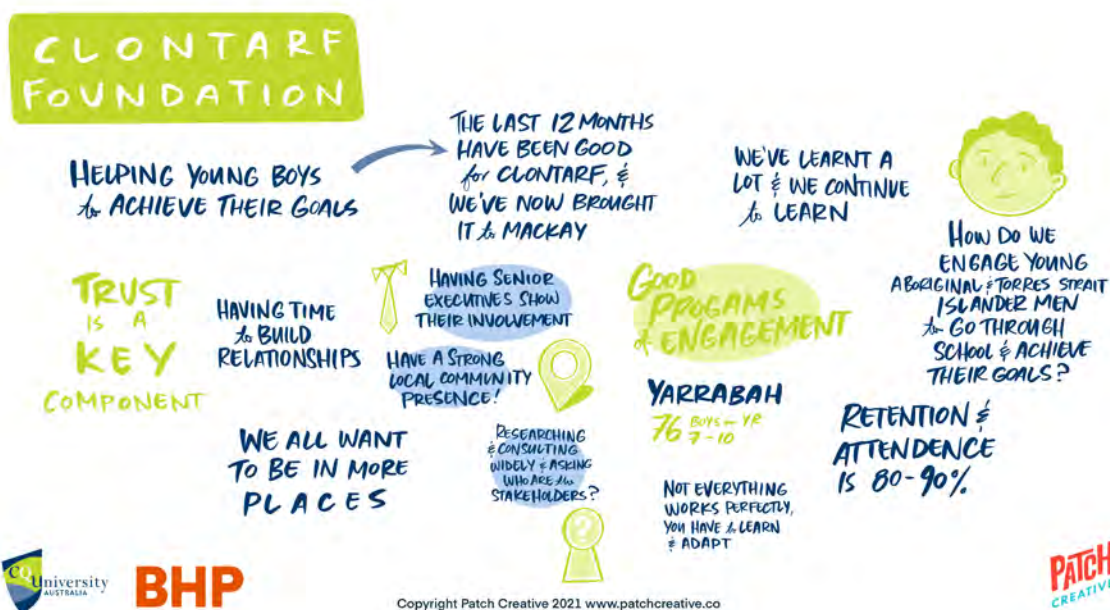 CLONTARF
FOUNDATION
HELPING YOUNG BOYS
to ACHIEVE THEIR GOALS
THE LAST 12 MONTHS
HAVE BEEN GOOD
for CLONTARF, &
WE'VE NOW BROUGHT
IT to MACKAY
WE'VE LEARNT A
LOT & WE CONTINUE
to LEARN
HOW DO WE
ENGAGE YOUNG
ABORIGINAL & TORRES STRAIT
ISLANDER MEN
to GO THROUGH
SCHOOL & ACHIEVE
THEIR GOALS?
TRUST
IS A
KEY
COMPONENT
HAVING TIME
to BUILD
RELATIONSHIPS
HAVING SENIOR
EXECUTIVES SHOW
THEIR INVOLVEMENT
HAVE A STRONG
LOCAL COMMUNITY
PRESENCE!
GOOD
PROGAMS
of ENGAGEMENT
YARRABAH
76 BOYS - YR
7-10
RETENTION &
ATTENDENCE
IS 80-90%
WE ALL WANT
TO BE IN MORE
PLACES
RESEARCHING
& CONSULTING
WIDELY & ASKING
WHO ARE the
STAKEHOLDERS?
?
NOT EVERYTHING
WORKS PERFECTLY,
YOU HAVE to LEARN
& ADAPT
CQUniversity
AUSTRALIA
BHP
Copyright Patch Creative 2021 www.patchcreative.co
PATCH
CREATIVE